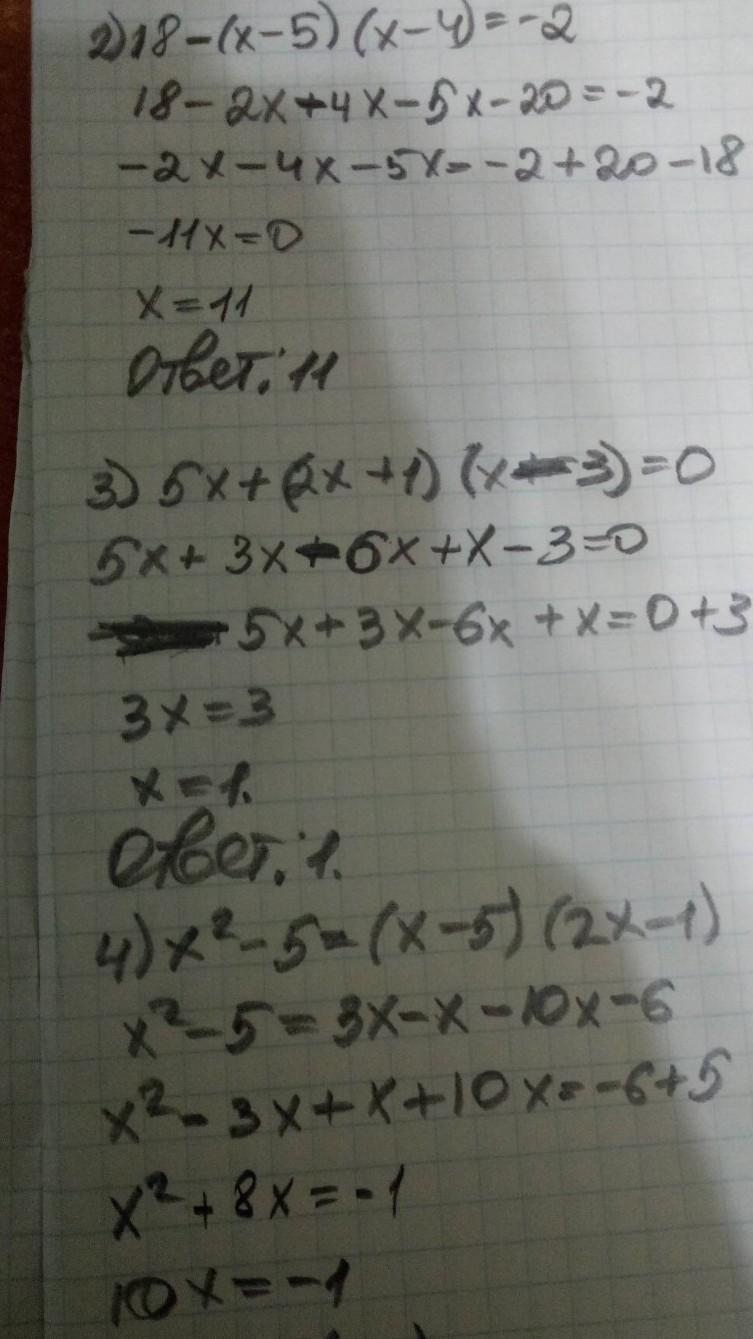 2) 18-(x-5)(x-4)=-2
18-2x+4x-5x-20=-2
-2x-4x-5x=-2+20-18
-11x=0
x=11
Ответ: 11
3) 5x+(2x+1)(x-3)=0
5x+3x-6x+x-3=0
5x+3x-6x+x=0+3
3x=3
x=1.
Ответ: 1.
4) x²-5=(x-5)(2x-1)
x²-5=3x-x-10x-6
x²-3x+x+10x=-6+5
x²+8x=-1
10x=-1